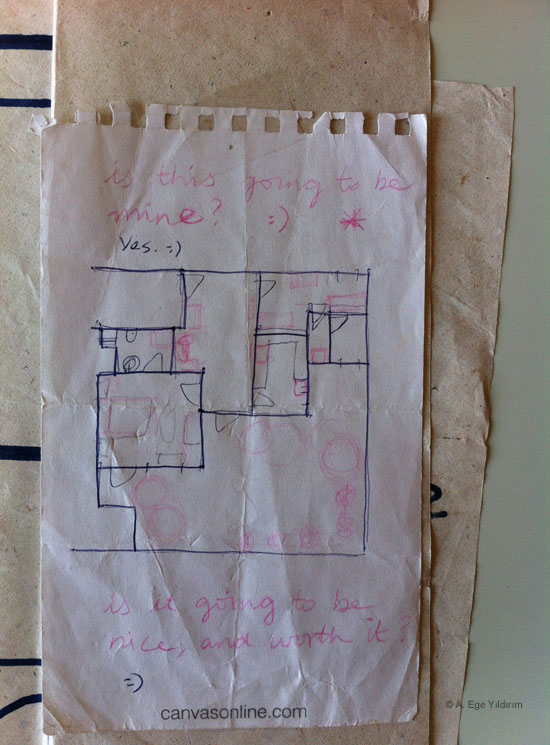 is this going to be
mine? :) *
Yes. :)
is it going to be
nice, and worth it?
=)
canvasonline.com
© A. Ege Yıldırım